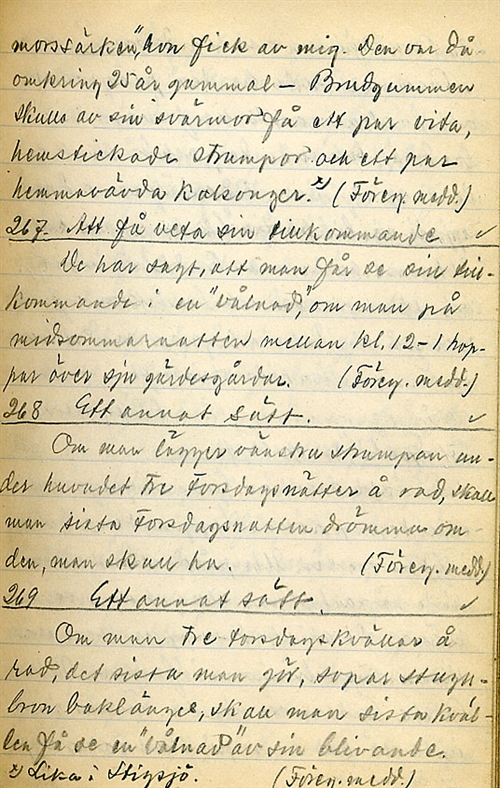 morssärken", hon fick av mig. Den var då
omkring 25 år gammal – Brudgummen
skulle av sin svärmor få ett par vita,
hemstickade strumpor och ett par
hemmavävda kalsonger. x) (Föreg. medd.)
267. Att få veta sin tillkommande ✓
De har sagt, att man får se sin till-
kommande i en "vålnad", om man på
midsommarnatten mellan kl. 12–1 hop-
par över sju gärdesgårdar. (Föreg. medd.)
268 Ett annat sätt. ✓
Om man lägger vänstra strumpan un-
der huvudet tre torsdagsnätter å rad, skall
man sista torsdagsnatten drömma om
den, man skall ha. (Föreg. medd.)
269 Ett annat sätt. ✓
Om man tre torsdagskvällar å
rad, det sista man gör, sopar stugu-
bron baklänges, skall man sista kväl-
len få se en "vålnad" av sin blivande.
x) Lika i Stigsjö. (Föreg. medd.)